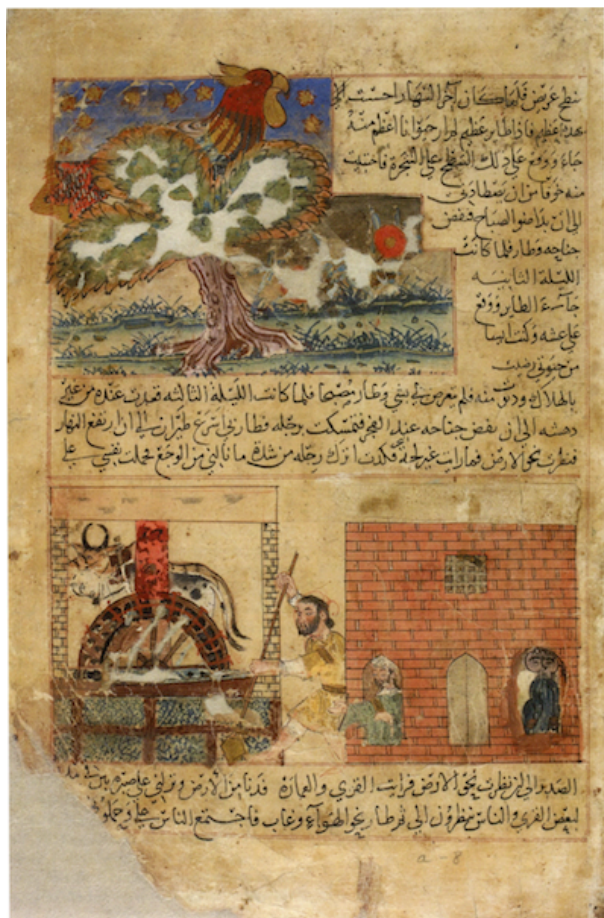 سطح عريض فلما كان آخر النهار احست الي
بهدة عظيم فاذا طار عظيم لم ار حيوانا اعظم منه
جاء ووقع علي ذلك السطح علي الشجرة فاختبيت
منه خوفا من ان يصطادني
الي ان بدا ضو الصباح فنفض
جناحيه وطار فلما كانت
الليلة الثانيه
جاء الطار ووقع
علي عشه وكنت ايسا
من حيوتي رضيت
بالهلاك ودنوت منه فلم يتعرض لي بشي وطار مصبحا فلما كانت الليلة الثالثه قعدت عنده من غير
دهشه الي ان نفض جناحه عند الفجر فتمسكت برجله فطار بي اسرع طيران الي ان ارتفع النهار
فنظرت نحو الارض فما رايت غير لجة فكدت اترك رجله من شدة ما نالني من الوجع فحملت نفسي علي
الصبر الي ان نظرت نحو الارض فرايت القري والعمارة فدنا من الارض وتركني علي صبرة تبن في
لبعض القري والناس ينظرون الي ثم طار نحو الهوآء وغاب فاجتمع الناس علي وحملو
a - 8